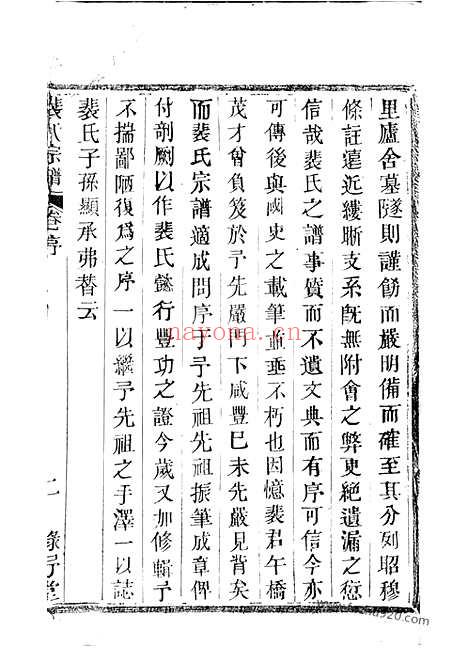 里廬舍墓隧則謹飭而嚴明備而確至其分列昭穆
條註遠近縷晰支系旣無附會之弊更絕遺漏之愆
信哉裴氏之譜事質而不遺文典而有序可信今亦
可傳後與國史之載筆並垂不朽也因憶裴君午橋
茂才曾負笈於予先嚴門下咸豐巳未先嚴見背矣
而裴氏宗譜適成問序于予先祖先祖振筆成章俾
付剞劂以作裴氏懿行豐功之證今歲又加修輯予
不揣鄙陋復爲之序一以繼予先祖之手澤一以誌
裴氏子孫顯承弗替云
裴氏宗譜
卷一序
二
nayona.cn
nayona920.com